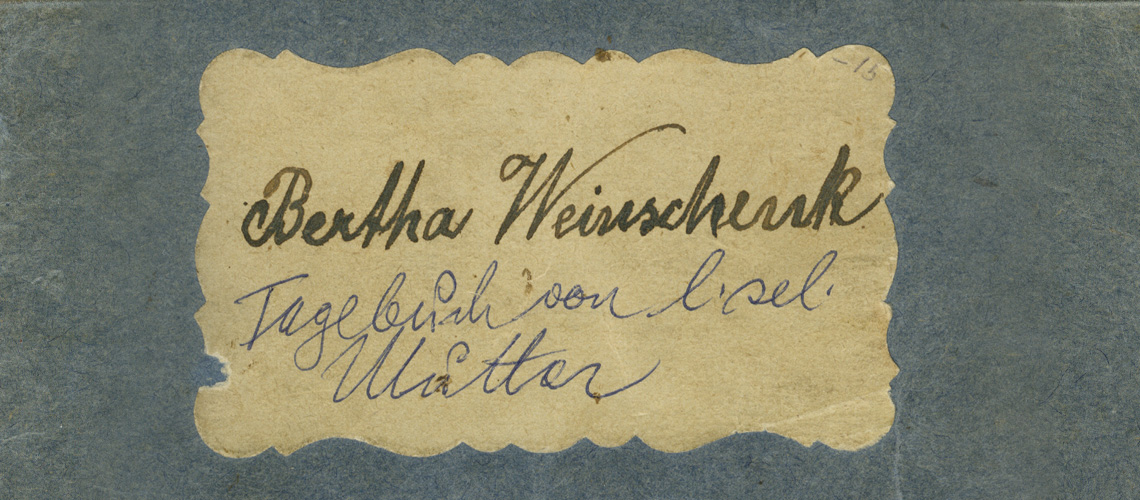 -15
Bertha Weinschenk
Tagebuch von l. sel.
Mutter